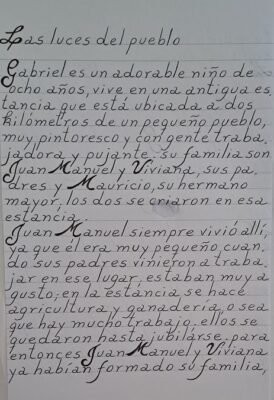 Las luces del pueblo
Gabriel es un adorable niño de
ocho años, vive en una antigua es
tancia que está ubicada a dos
kilómetros de un pequeño pueblo,
muy pintoresco y con gente traba,
jadora y pujante. su familia son
Juan Manuel y Viviana, sus pa,
dres y Mauricio, su hermano
mayor, los dos se criaron en esa
estancia.
Juan Manuel siempre vivió allí,
ya que él era muy pequeño cuan,
do sus padres vinieron a traba,
jar en ese lugar, estaban muy a
gusto; en la estáncia se hace
agricultura y ganadería, o sea
que hay mucho trabajo, ellos se
quedaron hasta jubilárse. para
entonces Juan Manuel y Viviana
ya habían formado su familia,